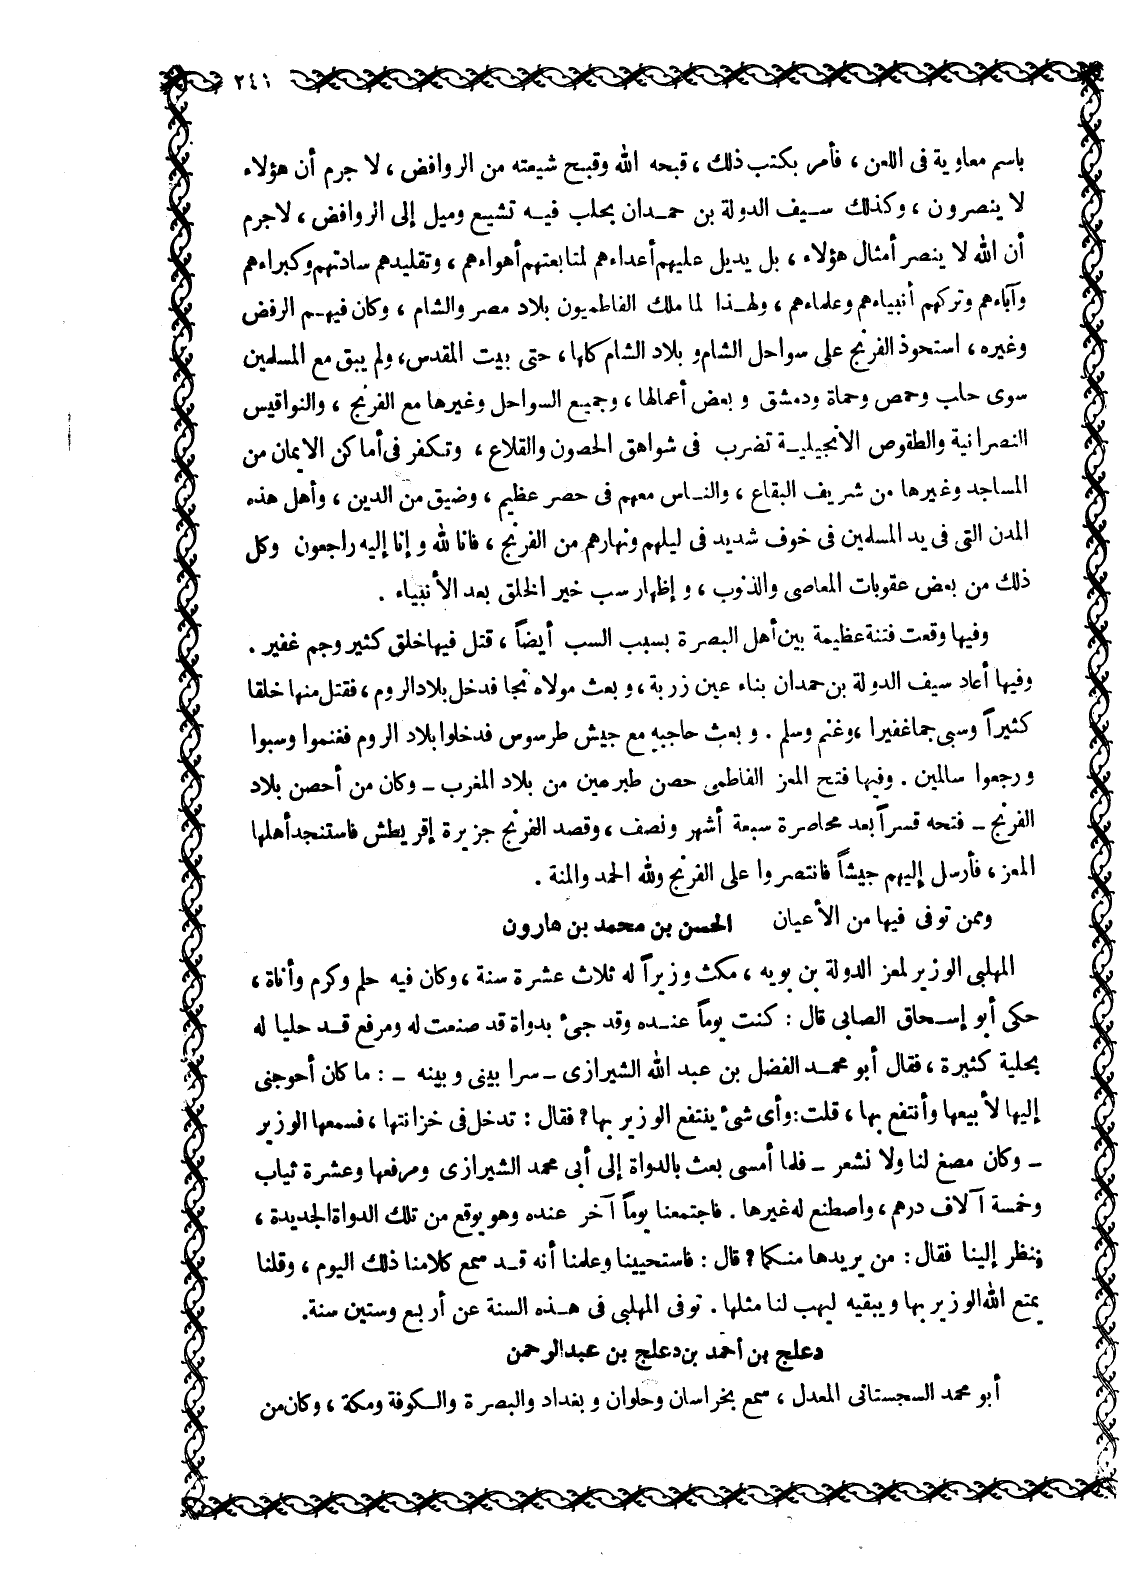 ٢٤١
باسم معاوية فى اللعن ، فأمر بكتب ذلك ، قبحه الله وقبح شيعته من الروافض ، لا جرم أن هؤلاء
لا ينصرون ، وكذلك سيف الدولة بن حمدان بحلب فيه تشيع وميل إلى الروافض ، لا جرم
أن الله لا ينصر أمثال هؤلاء ، بل يديل عليهم أعداءهم لمتابعتهم أهواءهم ، وتقليدهم سادتهم وكبراءهم
وآباءهم وتركهم أنبياءهم وعلماءهم ، ولهذا لما ملك الفاطميون بلاد مصر والشام ، وكان فيهم الرفض
وغيره ، استحوذ الفرنج على سواحل الشام و بلاد الشام كلها ، حتى بيت المقدس ، ولم يبق مع المسلمين
سوى حلب وحمص وحماة ودمشق و بعض أعمالها ، وجميع السواحل وغيرها مع الفرنج ، والنواقيس
النصرانية والطقوص الانجيلية تضرب فى شواهق الحصون والقلاع ، وتكفر فى أماكن الايمان من
المساجد وغيرها من شريف البقاع ، والناس معهم فى حصر عظيم ، وضيق من الدين ، وأهل هذه
المدن التى فى يد المسلمين فى خوف شديد فى ليلهم ونهارهم من الفرنج ، فانا لله و إنا إليه راجعون وكل
ذلك من بعض عقوبات المعاصى والذنوب ، و إظهار سب خير الخلق بعد الأنبياء .
وفيها وقعت فتنة عظيمة بين أهل البصرة بسبب السب أيضاً ، قتل فيها خلق كثير وجم غفير .
وفيها أعاد سيف الدولة بن حمدان بناء عين زربة ، و بعث مولاه نجا فدخل بلاد الروم ، فقتل منها خلقا
كثيراً وسبى جما غفيرا ، وغنم وسلم . و بعث حاجبه مع جيش طرسوس فدخلوا بلاد الروم فغنموا وسبوا
ورجعوا سالمين . وفيها فتح المعز الفاطمى حصن طبرمين من بلاد المغرب ــ وكان من أحصن بلاد
الفرنج ــ فتحه قسراً بعد محاصرة سبعة أشهر ونصف ، وقصد الفرنج جزيرة إقريطش فاستنجد أهلها
المعز ، فأرسل إليهم جيشاً فانتصروا على الفرنج ولله الحمد والمنة .
وممن توفى فيها من الأعيان الحسن بن محمد بن هارون
المهلبى الوزير لمعز الدولة بن بويه ، مكث وزيراً له ثلاث عشرة سنة ، وكان فيه حلم وكرم وأناة ،
حكى أبو إسحاق الصابى قال : كنت يوماً عنده وقد جئ بدواة قد صنعت له ومرفع قد حليا له
بحلية كثيرة ، فقال أبو محمد الفضل بن عبد الله الشيرازى ــ سرا بينى و بينه ــ : ما كان أحوجنى
إليها لأبيعها وأنتفع بها ، قلت : وأى شئ ينتفع الوزير بها ؟ فقال : تدخل فى خزانتها ، فسمعها الوزير
ــ وكان مصغ لنا ولا نشعر ــ فلما أمسى بعث بالدواة إلى أبى محمد الشيرازى ومرفعها وعشرة ثياب
وخمسة آلاف درهم ، واصطنع له غيرها . فاجتمعنا يوماً آخر عنده وهو يوقع من تلك الدواة الجديدة ،
فنظر إلينا فقال : من يريدها منكما ؟ قال : فاستحيينا وعلمنا أنه قد سمع كلامنا ذلك اليوم ، وقلنا
يمتع الله الوزير بها ويبقيه ليهب لنا مثلها . توفى المهلبى فى هذه السنة عن أربع وستين سنة.
دعلج بن أحمد بن دعلج بن عبد الرحمن
أبو محمد السجستانى المعدل ، سمع بخراسان وحلوان و بغداد والبصرة والكوفة ومكة ، وكان من